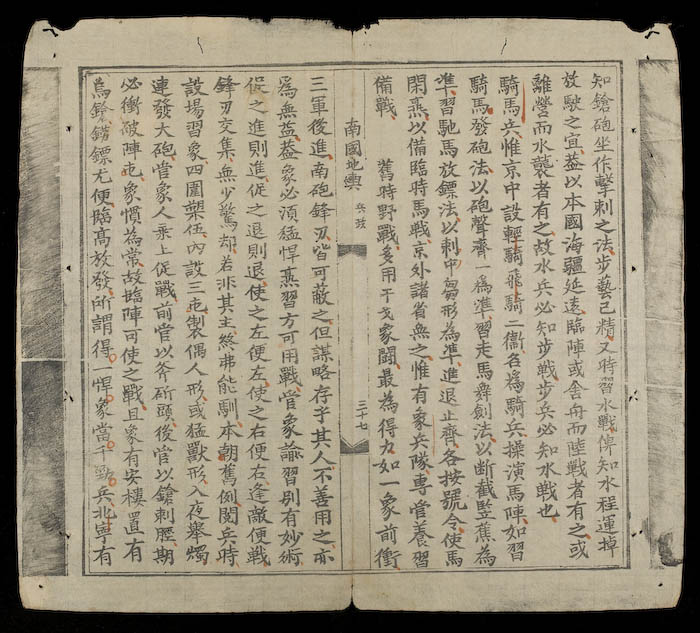 知鎗砲坐作擊刺之法步藝已精又時習水戰俾知水程運掉
放駛之宜葢以本國海疆延遠臨陣或舍舟而陸戰者有之或
離營而水襲者有之故水兵必知步戰步兵必知水戰也
騎馬兵惟京中設輕騎飛騎二衞各為騎兵操演馬陣如習
騎馬發砲法以砲聲齊一為準習走馬舞劍法以断截監蕉為
準習馳馬放鏢法以刺中芻形為準進退止齊各按號令使馬
閑熹以備臨時馬戰京外諸省無之惟有象兵隊專管養習
備戰 舊時野戰多用干戈象鬪最為得力如一象前衝
南國地輿 兵政 三十七
三軍後進南砲鋒刃皆可蔽之但謀略存乎其人不善用之亦
為無益葢象必湏猛悍熹習方可用戰管象諭習別有妙術
促之進則進促之退則退使之左便左使之右便右逢敵便戰
鋒刃交集無少驚却若非其主終弗能馴本朝舊例閱兵時
設場習象四圍槊伍內設三屯製偶人形或猛獸形入夜舉燭
連發大砲管象人乘上促戰前管以斧斫頭後管以鎗刺脛期
必衝破陣屯象慣為常故臨陣可使之戰且象有安樓置有
鳥鎗鐒鏢尤便臨高放發所謂得一悍象當千勁兵北寧有